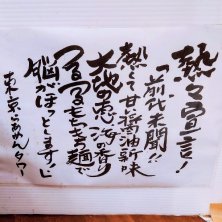 熱々宣言!
「前代未聞!!
熱くて甘い醤油新味
大地の恵、海の香り
つるつるもちもち麺で
脳がほっとします。」
東京らあめんタワー